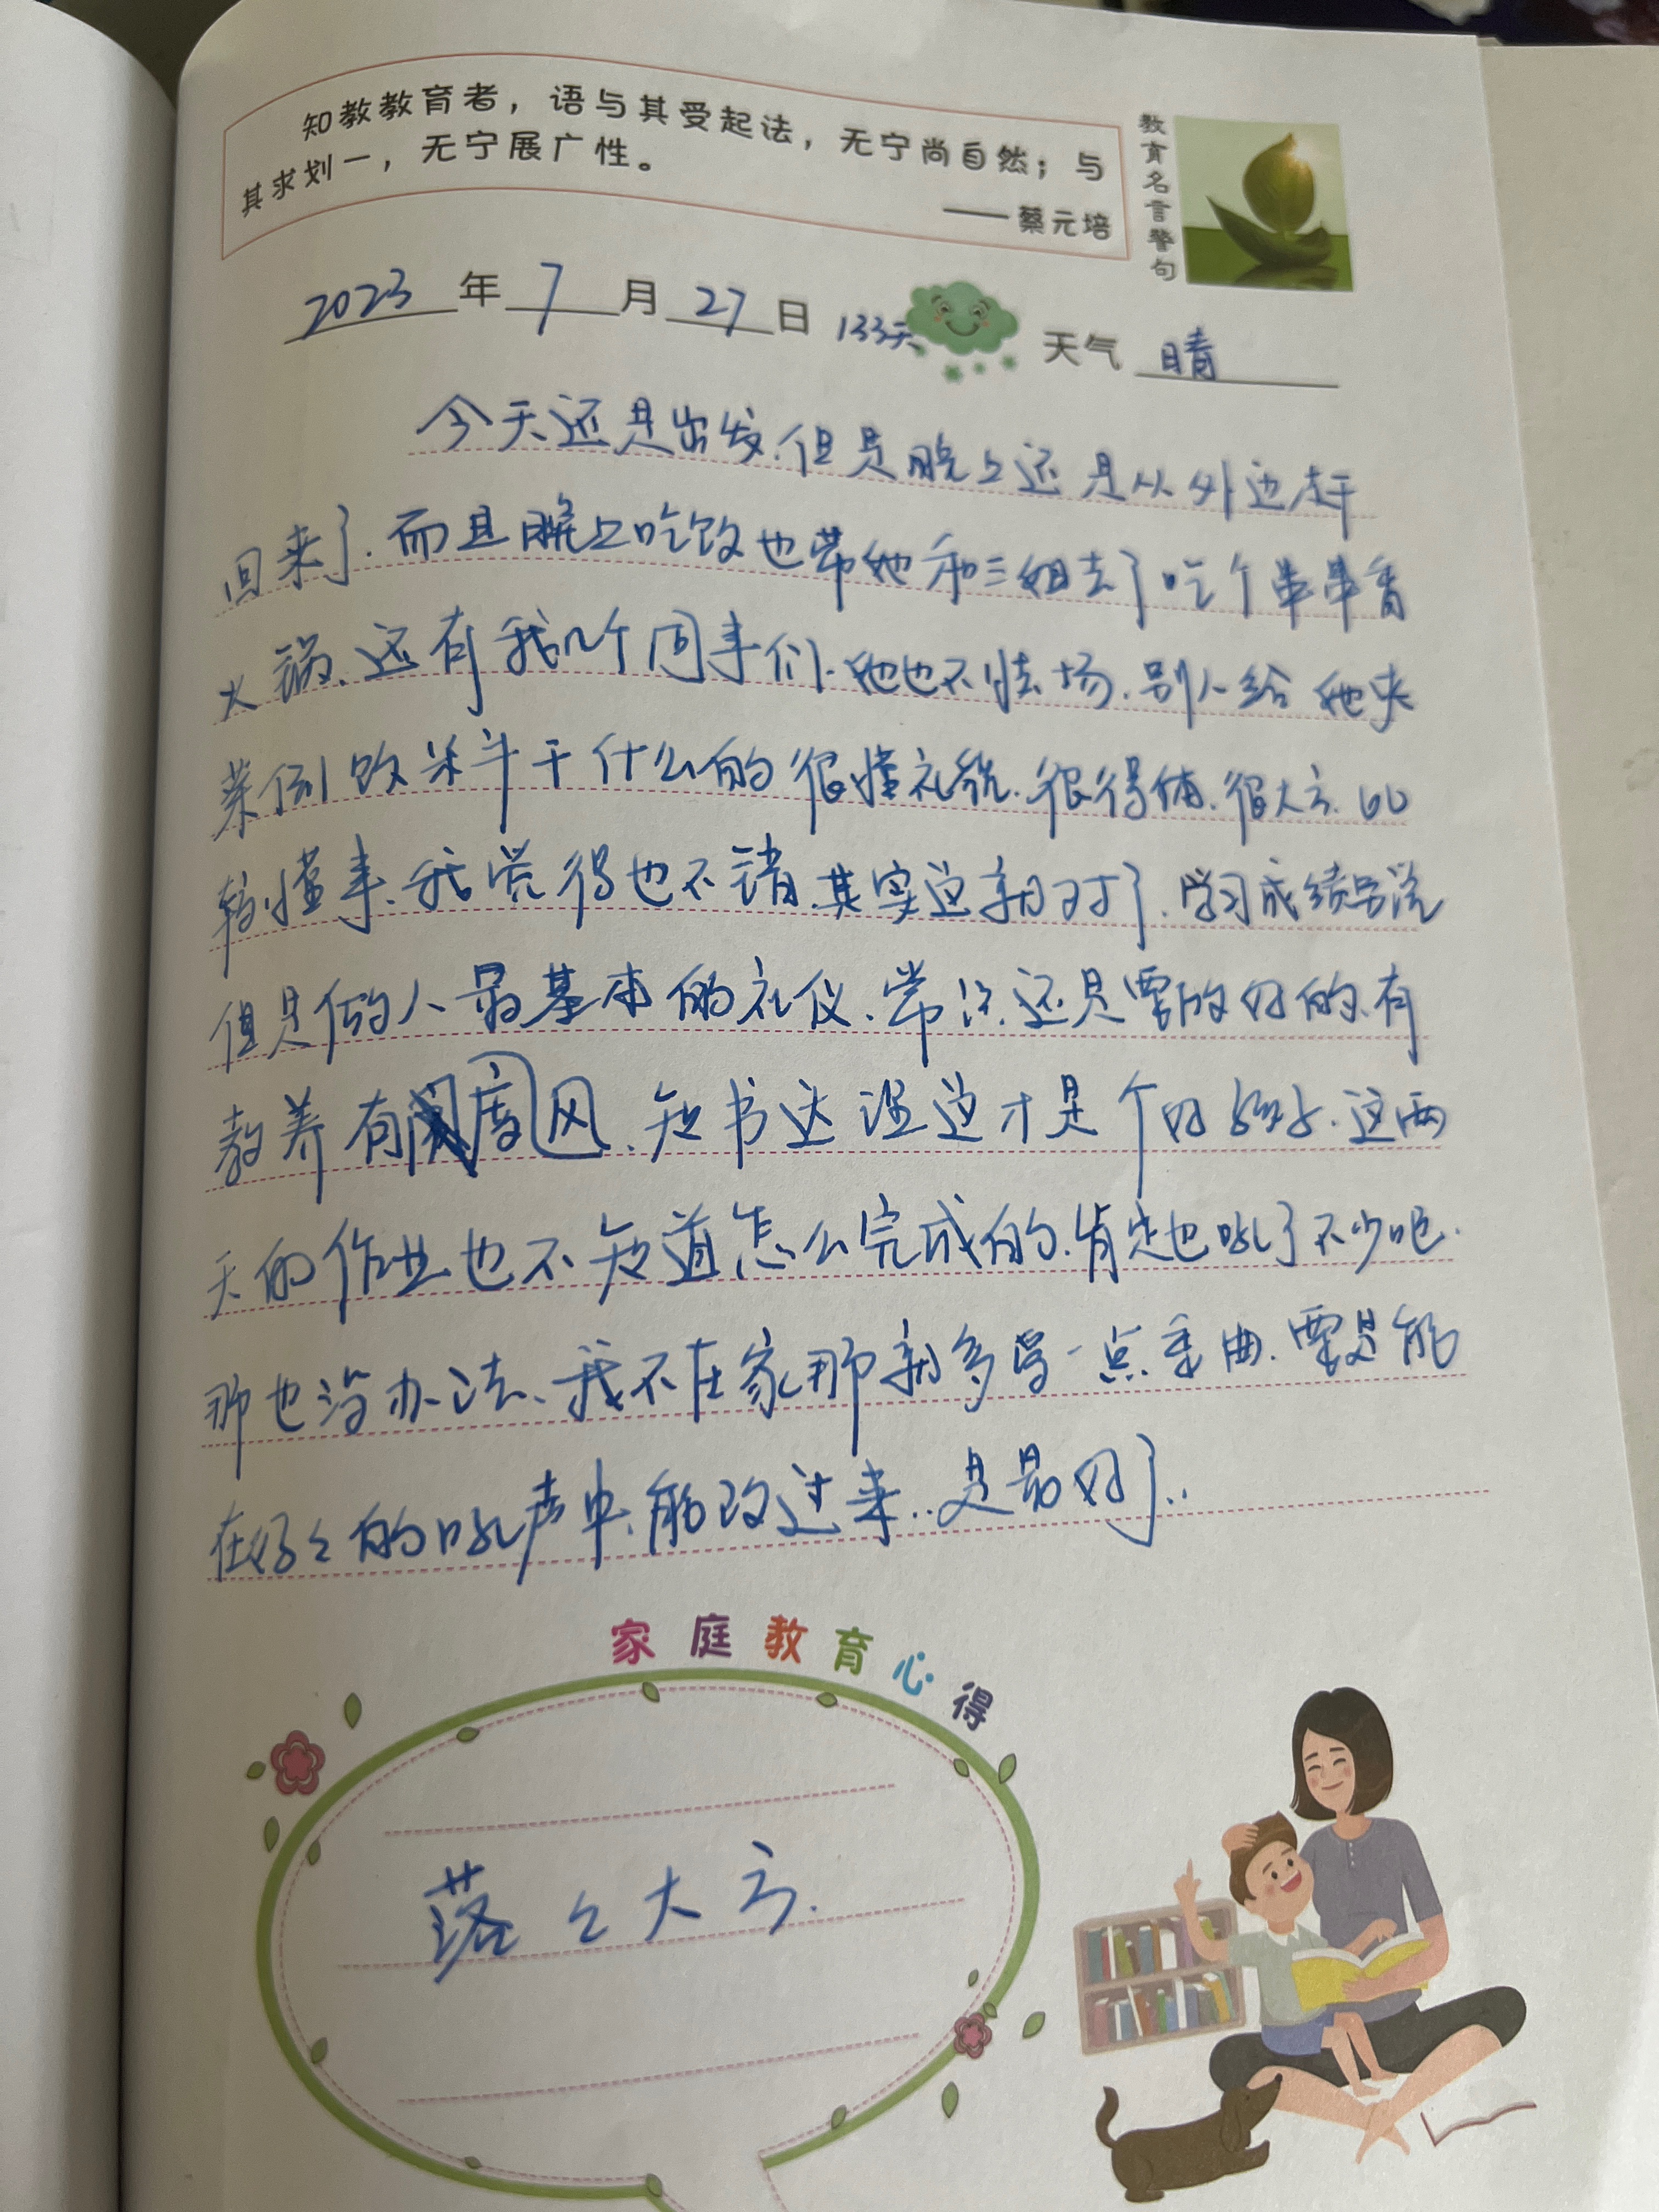 知教教育者，语与其受起法，无宁尚自然；与
其求划一，无宁展广性。
——蔡元培
教育名言警句
2023年7月27日 133天 天气 晴
今天还是出发.但是晚上还是从外边赶
回来了.而且晚上吃饭也带她和三姐去了吃个串串香
火锅、还有我几个同事们.她也不怯场.别人给她夹
菜倒饮料干什么的很懂礼貌.很得体.很大方.比
较懂事、我觉得也不错.其实这就对了.学习成绩另说
但是做人最基本的礼仪.常识.还是要做好的.有
教养有度风、知书达理这才是个好孩子.这两
天的作业也不知道怎么完成的.肯定也吼了不少吧.
那也没办法、我不在家那就多受一点委曲.要是能
在妈々的吼声中.能改过来..是最好了..
家庭教育心得
落々大方.